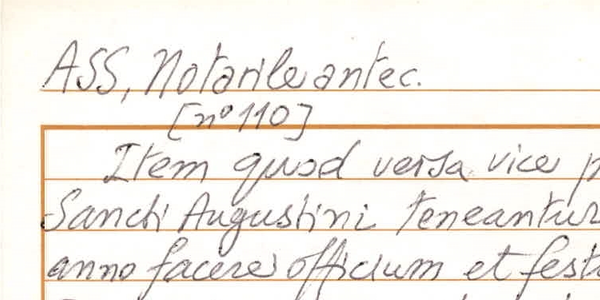 ASS, Notarile antec.
[n° 110]
Item quod versa vice
Sancti Augustini teneantur
anno facere officium et